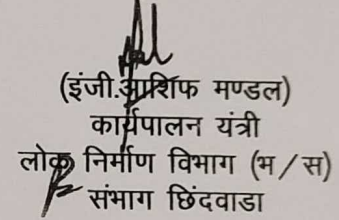 (इंजी.आशिफ मण्डल)
कार्यपालन यंत्री
लोक निर्माण विभाग (भ/स)
संभाग छिंदवाडा